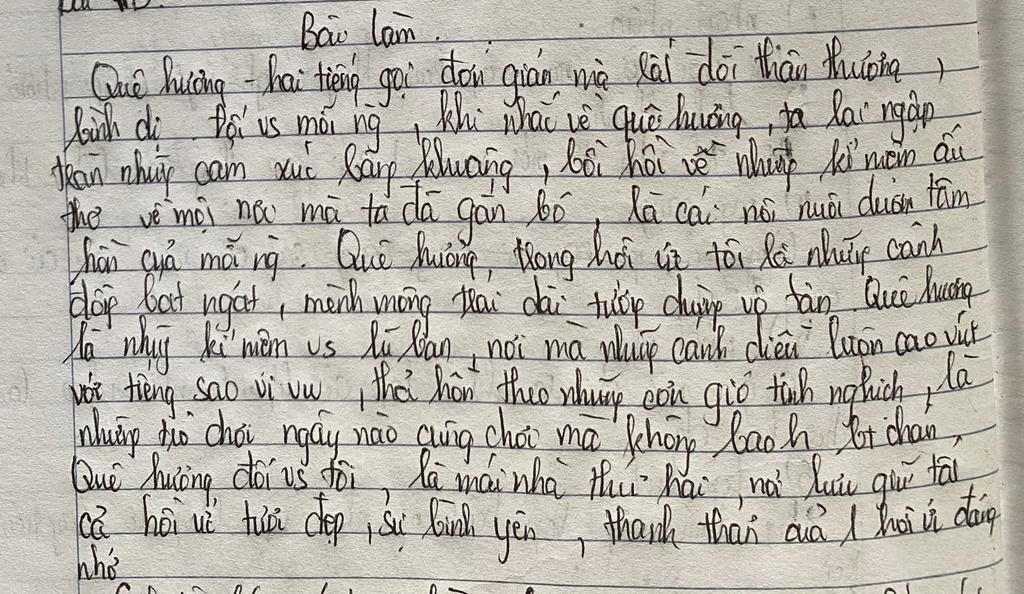 Bài làm.
Quê hương - hai tiếng gọi đơn giản mà lại đỗi thân thương,
bình dị. Đối vs mỗi ng, khi nhắc về quê hương, ta lại ngập
tràn những cảm xúc bâng khuâng, bồi hồi về những kỉ niệm ấu
thơ về một nơi mà ta đã gắn bó, là cái nôi nuôi dưỡng tâm
hồn của mỗi ng. Quê hương, trong hồi ức tôi là những cánh
đồng bát ngát, mênh mông trải dài tưởng chừng vô tận. Quê hương
là những kỉ niệm vs lũ bạn, nơi mà những cánh diều luôn cao vút
với tiếng sáo vi vu, thả hồn theo những cơn gió tinh nghịch, là
những trò chơi ngày nào cũng chơi mà không bao h bt chán,
Quê hương, đối vs tôi, là mái nhà thứ hai, nơi lưu giữ tất
cả hồi ức tươi đẹp, sự bình yên, thanh thản của 1 hồi ức đáng
nhớ